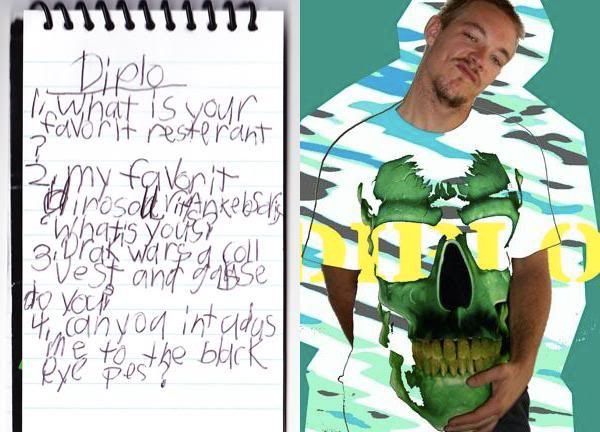 Diplo
1, What is your
favorit resterant
?
2, my favorit
whats yours?
3, Drak wars a coll
vest and
do you?
4, can you
me to the black
eye pes?
DIPLO